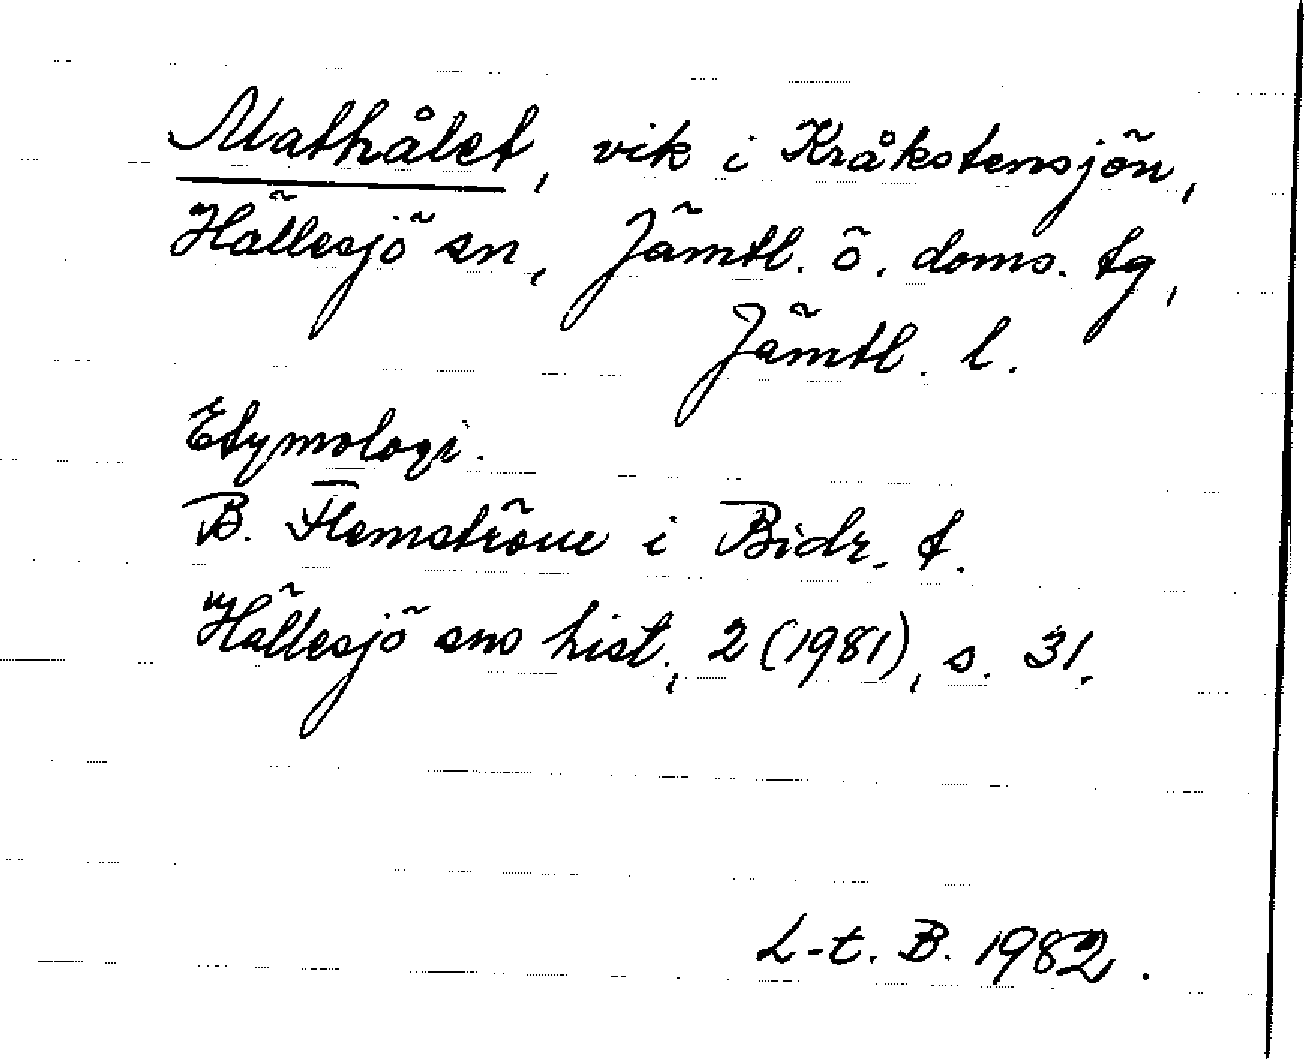 Mathålet, vik i Kråkstensjön,
Hällesjö sn, Jämtl. ö. doms. tg,
Jämtl. l.
Etymologi.
B. Flemström i Bidr. t.
Hällesjö sns hist., 2 (1981), s. 31.
L-t. B. 1982.